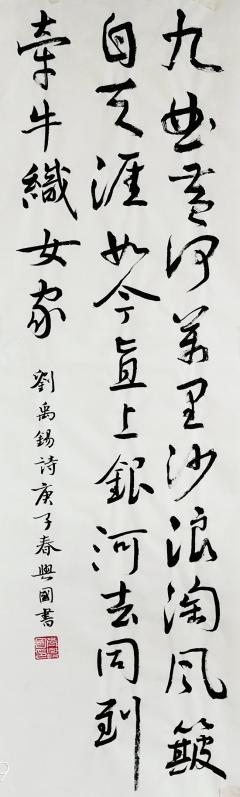 九曲黄河萬里沙浪淘風簸
自天涯如今直上銀河去同到
牽牛織女家
劉禹錫詩庚子春興國書